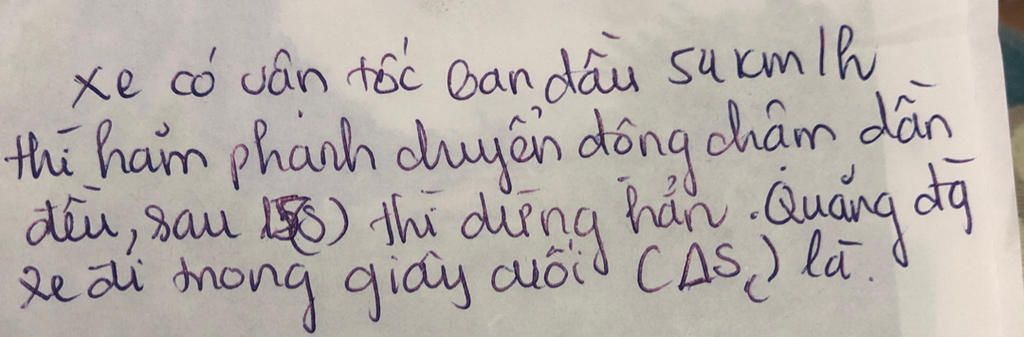 xe có vận tốc ban đầu 54 km/h
thì hãm phanh chuyển động chậm dần
đều, sau 15(s) thì dừng hẳn. Quãng đg
xe đi trong giây cuối (ΔSc) là.